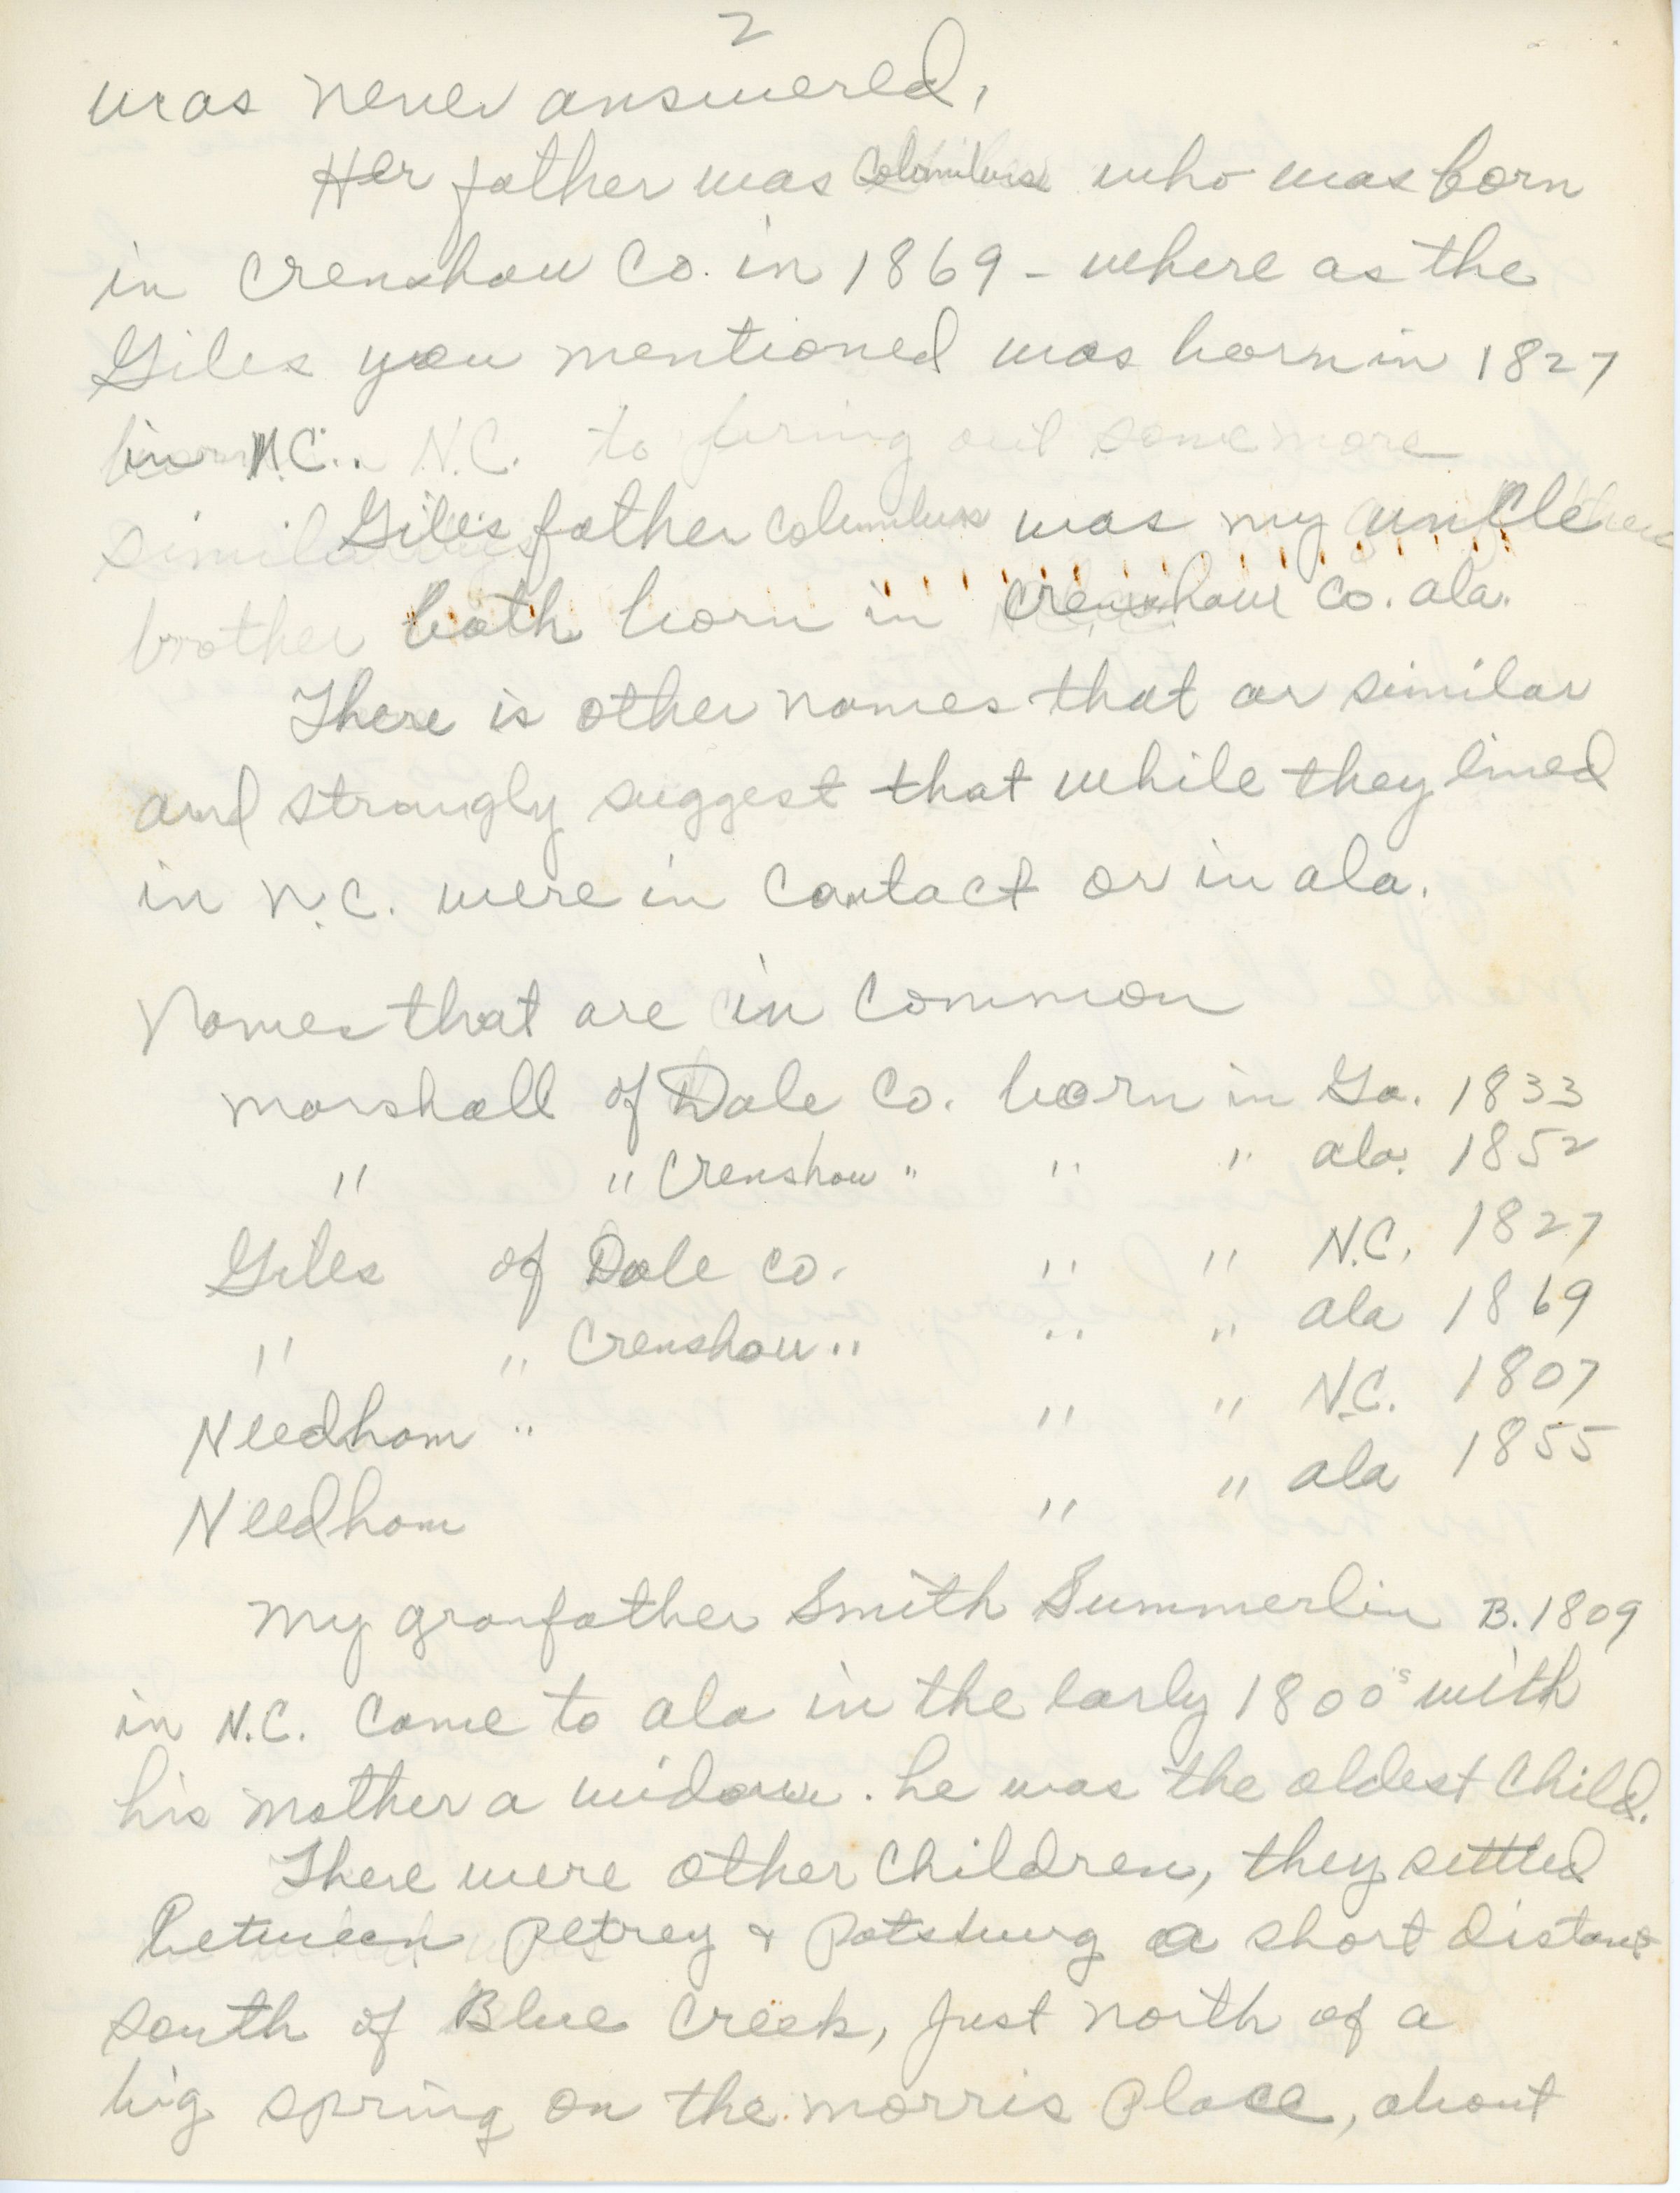 2
was never answered,
Her father was Columbus who was born
in Crenshaw Co. in 1869 - where as the
Giles you mentioned was born in 1827
in N.C.. N.C. to bring out some more
Giles father Columbus was my uncle
brother both born in Crenshaw Co. ala.
There is other names that ar similar
and strongly suggest that while they lived
in N.C. were in Contact or in ala.
Names that are in Common
Marshall of Dale Co. born in Ga. 1833
" " Crenshaw " " " ala. 1852
Giles of Dale Co. " " N.C. 1827
" " Crenshaw " " " ala 1869
Needham " " " N.C. 1807
Needham " " ala 1855
My granfather Smith Summerlin B. 1809
in N.C. Came to ala in the early 1800s with
his mother a widow. he was the oldest Child.
There were other Children, they settled
between Petrey & Patsburg a short distance
south of Blue Creek, just north of a
big spring on the Morris Place, about